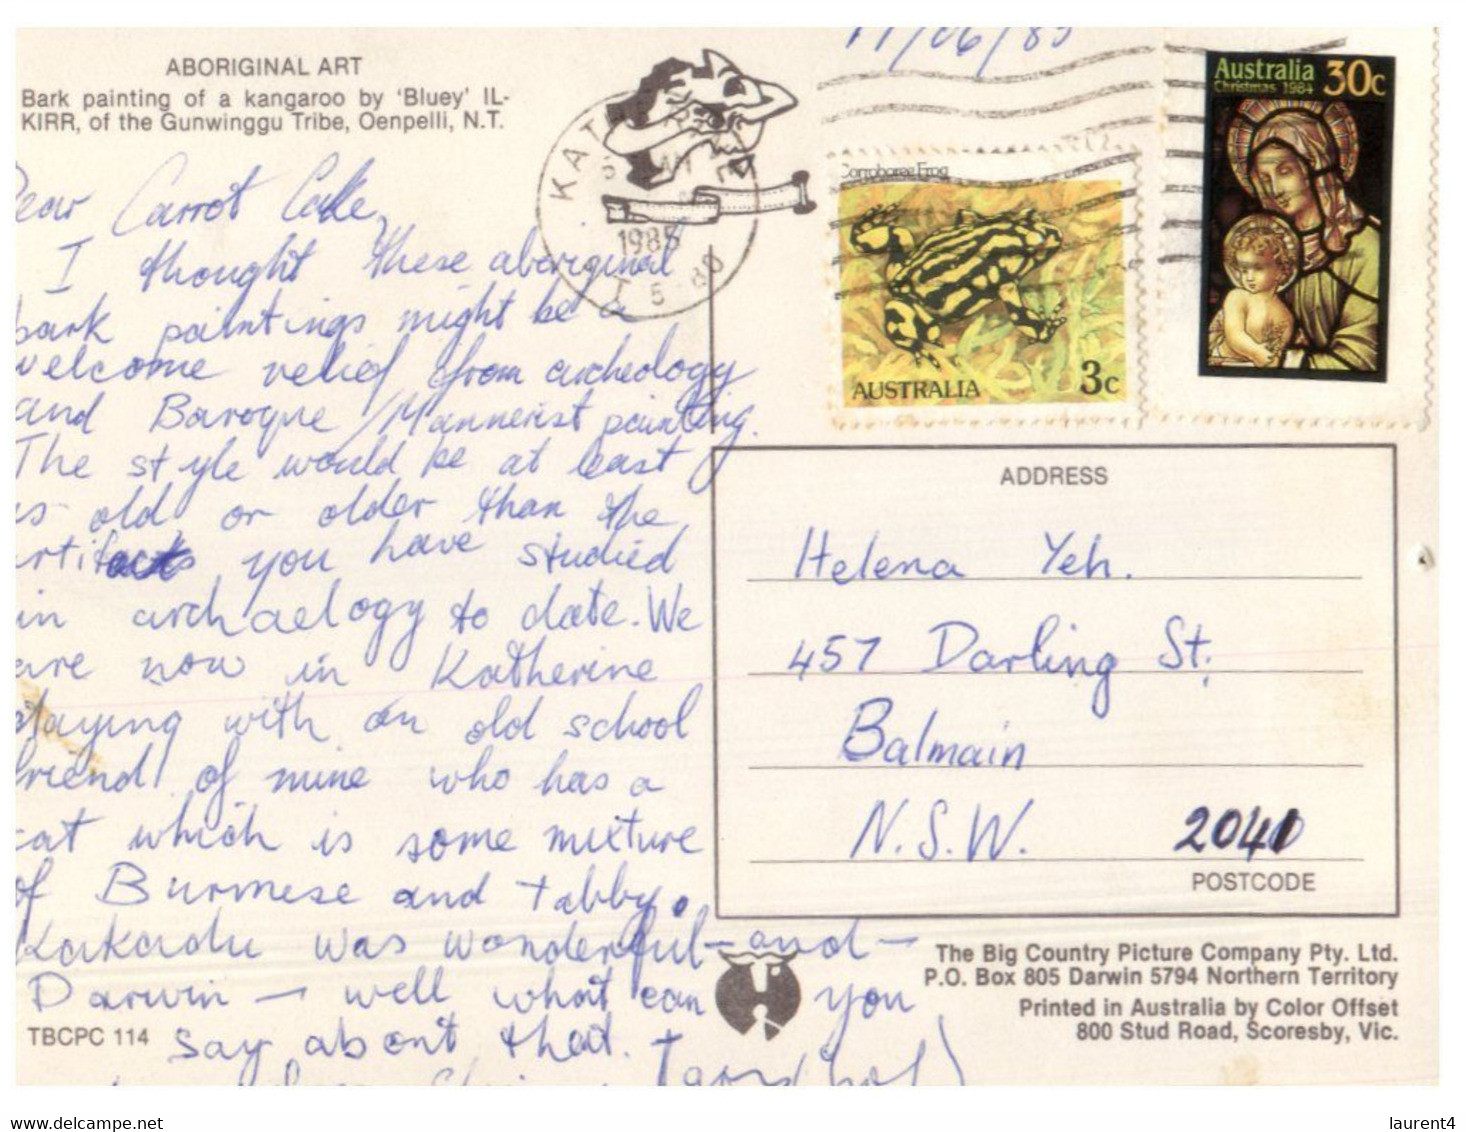 ABORIGINAL ART
Bark painting of a kangaroo by 'Bluey' IL-
KIRR, of the Gunwinggu Tribe, Oenpelli, N.T.
Dear Carrot Cake,
I thought these aboriginal
bark paintings might be a
welcome relief from archeology
and Baroque / Mannerist painting.
The style would be at least
as old or older than the
artifacts you have studied
in archaelogy to date. We
are now in Katherine
staying with an old school
friend of mine who has a
cat which is some mixture
of Burmese and tabby.
Kakadu was wonderful - and -
Darwin - well what can you
say about that.
TBCPC 114
11/06/85
1985
Corroboree Frog
AUSTRALIA 3c
Australia 30c
Christmas 1984
ADDRESS
Helena Yeh.
457 Darling St.
Balmain
N.S.W. 2041
POSTCODE
The Big Country Picture Company Pty. Ltd.
P.O. Box 805 Darwin 5794 Northern Territory
Printed in Australia by Color Offset
800 Stud Road, Scoresby, Vic.
laurent4